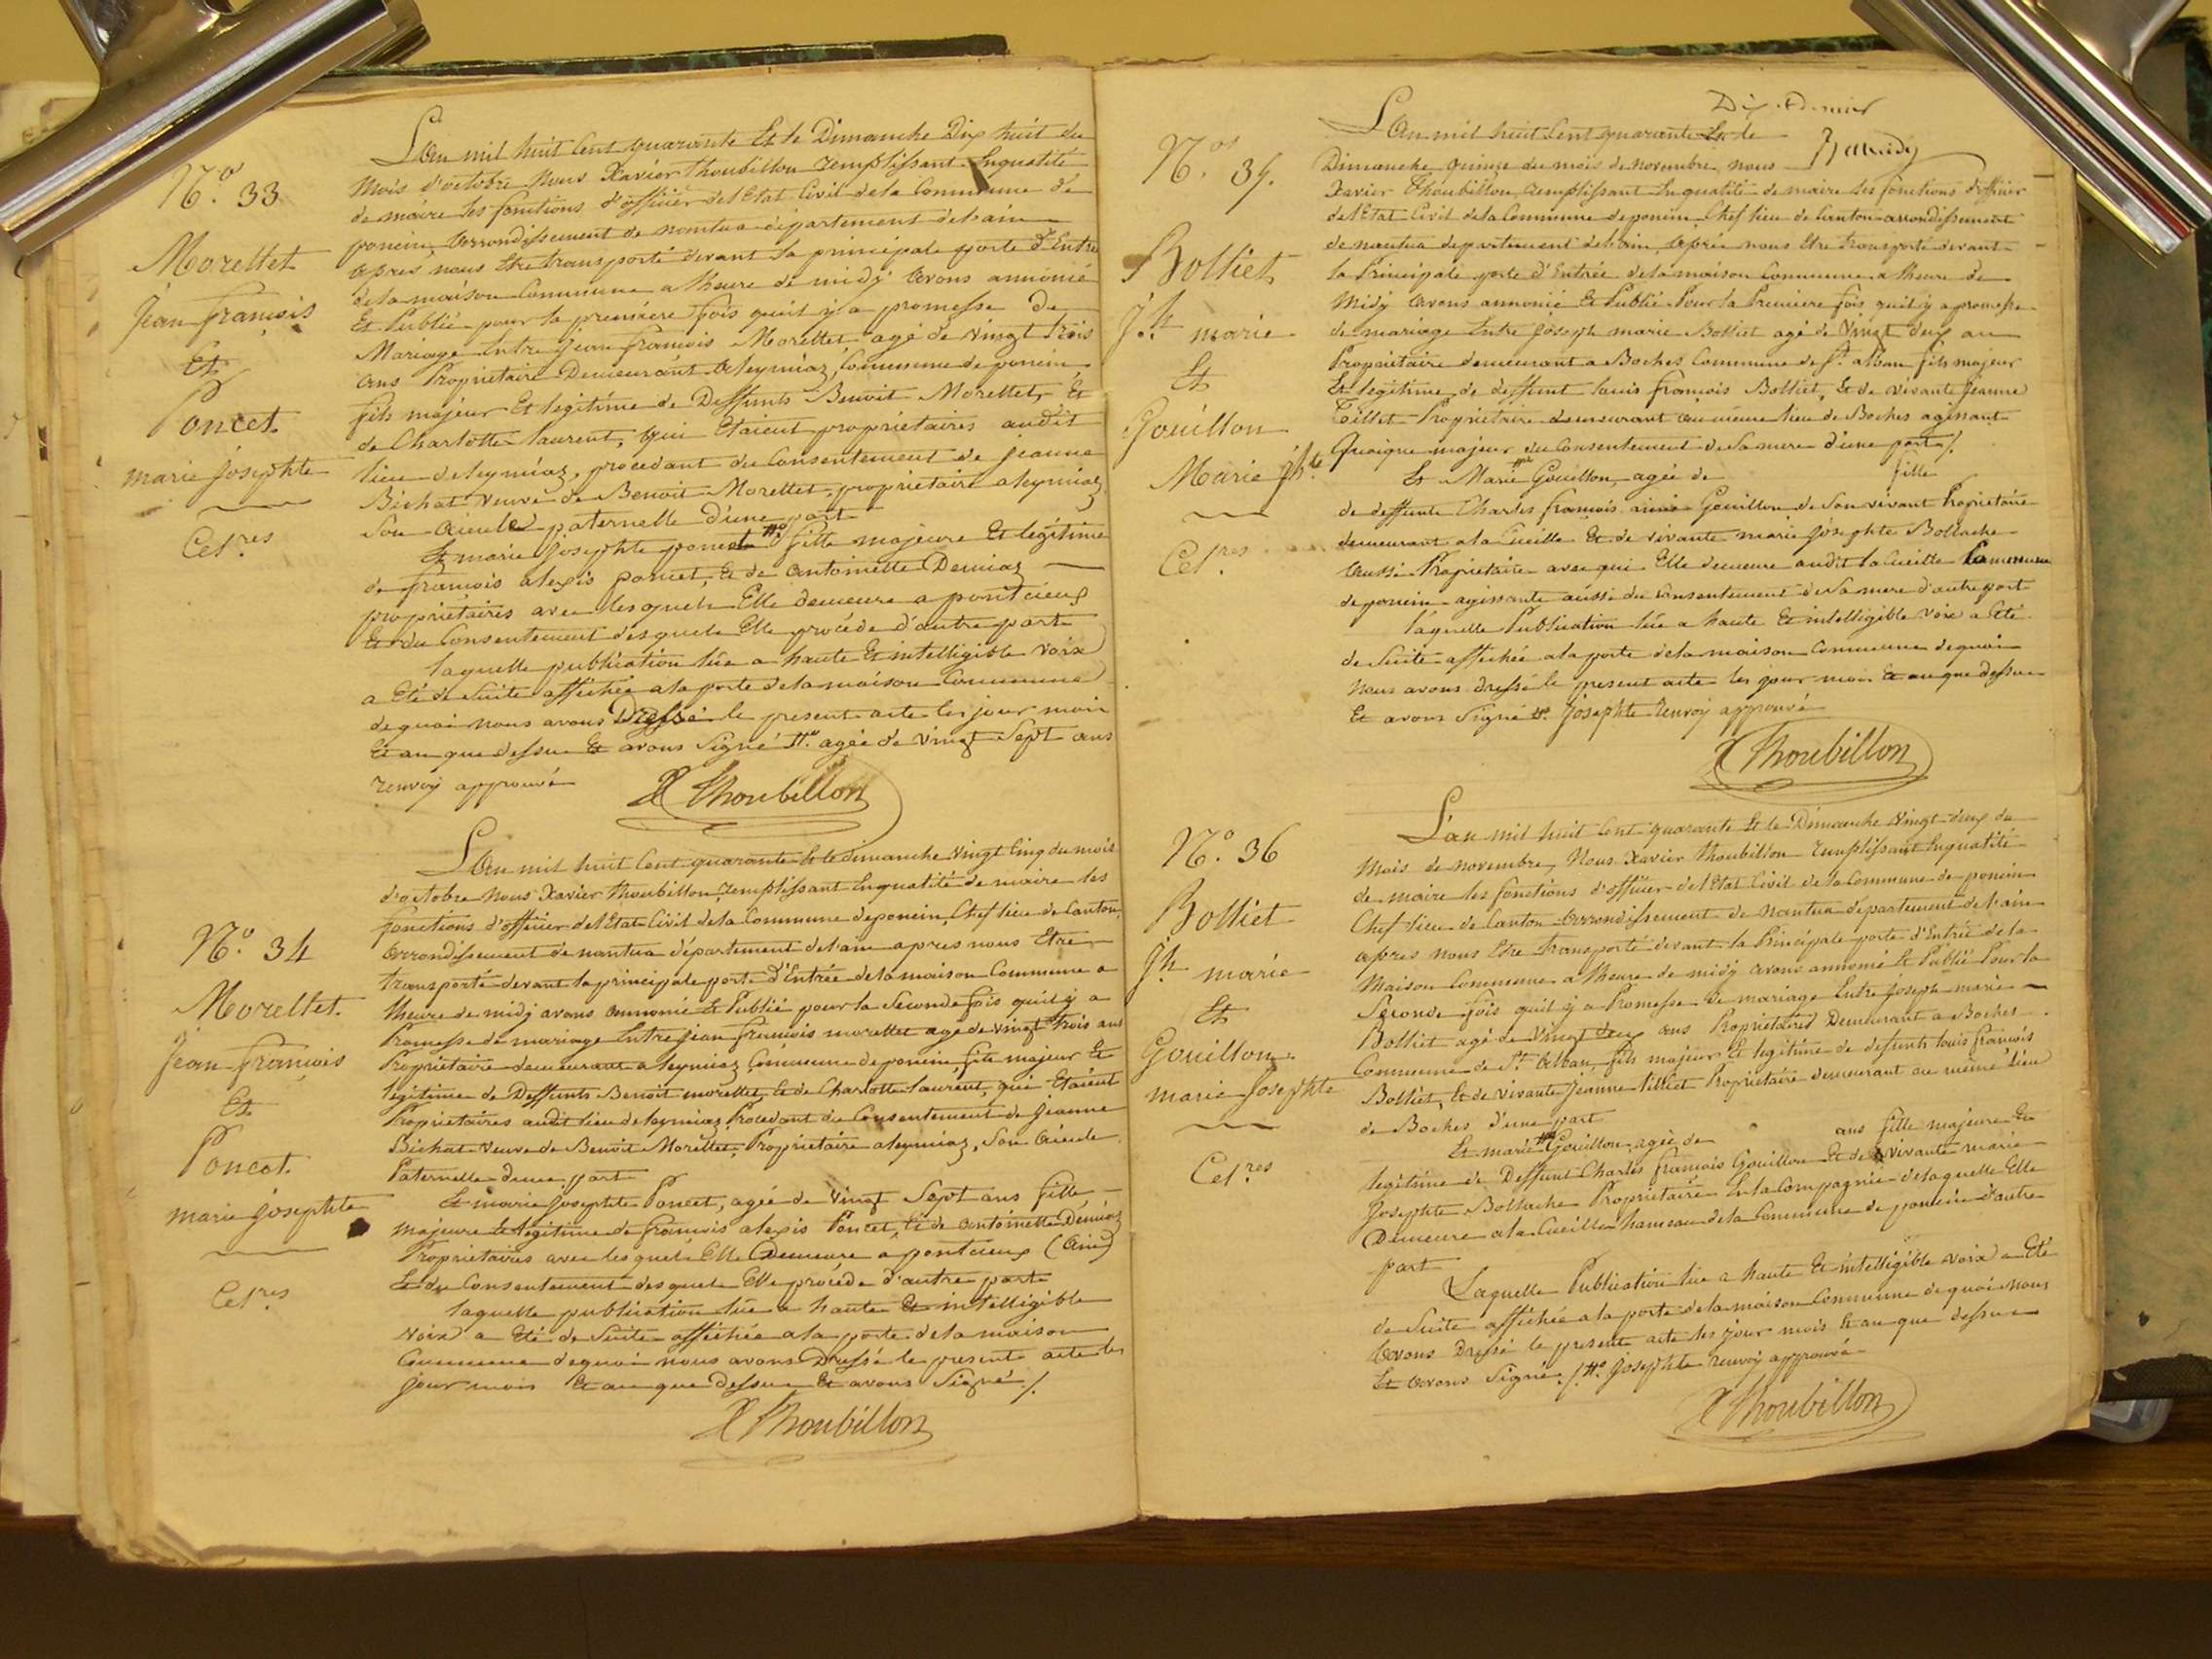 N.o 33
Morellet
Jean françois
Et
Poncet
marie josephte
Cel.res
L'An mil huit Cent quarante Et le Dimanche Dix huit du
Mois d'octobre Nous Xavier thoubillon remplissant Enqualité
de maire les fonctions d'officier del'Etat Civil dela Commune de
poncin arrondissement de nantua département delain
après nous Etre transporté devant la principale porte d'Entrée
dela maison Commune a lheure de midy Avons annoncé
Et Publié pour la première fois quil y a promesse de
Mariage Entre jean françois Morellet, agé de vingt trois
ans Propriétaire Demeurant a leymiaz, Commune de poncin
fils majeur Et legitime de Deffunts Benoit Morellet, Et
de Charlotte laurent, qui Etaient propriétaires audit
lieu de leymiaz, procedant du Consentement de jeanne
Bichat veuve de Benoit Morellet, propriétaire a leymiaz
Son aieule paternelle d'une part
Et marie josephte poncet #o fille majeure Et légitime
de françois alexis poncet, Et de antoinette Demiaz
propriétaires avec lesquels Elle demeure a pontcieux
Et du Consentement desquels Elle procède d'autre part
laquelle publication lüe a haute Et intelligible voix
a Eté de Suite affichée ala porte dela maison Commune
dequoi nous avons Dressé le present acte les jour mois
Et an que dessus Et avons Signé #o agée de vingt Sept ans
renvoy approuvé
X Thoubillon
N.o 34
Morellet.
Jean françois
Et
Poncet
marie josephte
Cel.res
L'An mil huit Cent quarante Et le dimanche Vingt Cinq du mois
d'octobre Nous Xavier thoubillon, remplissant Enqualité de maire les
fonctions d'officier del'Etat Civil dela Commune de poncin, Chef lieu de Canton,
arrondissement de nantua département delain apres nous Etre
transporté devant la principale porte d'Entrée dela maison Commune a
lheure de midj avons annoncé Et Publié pour la Seconde fois quil y a
Promesse de mariage Entre jean françois morellet agé de vingt trois ans
Propriétaire demeurant a leymiaz Commune de poncin, fils majeur Et
légitime de Deffunts Benoit morellet, Et de Charlotte laurent, qui Etaient
Propriétaires audit lieu de leymiaz, Procedant du Consentement de jeanne
Bichat veuve de Benoit Morellet, Propriétaire a leymiaz, Son aieule
Paternelle d'une part
Et marie josephte Poncet, agée de vingt Sept ans fille
majeure Et légitime de françois alexis Poncet, Et de antoinette Démiaz
Propriétaires avec lesquels Elle Demeure a pontcieux (Ain)
Et du Consentement desquels Elle procède d'autre part
laquelle publication lüe a haute Et intelligible
voix a Eté de Suite affichée ala porte dela maison
Commune dequoi nous avons Dressé le présent acte les
jour mois Et an que Dessus Et avons Signé ./.
X Thoubillon
N.os 35.
Bolliet
J.h marie
Et
Gouillon
Marie jh.te
Cel.res
Dix
L'An mil huit Cent quarante Et le
Dimanche quinze du mois de novembre, nous
Xavier Thoubillon, remplissant Enqualité de maire les fonctions d'officier
del'Etat Civil dela Commune de poncin Chef lieu de Canton arrondissement
de nantua departement delain, après nous Etre transporté devant
la Principale porte d'Entrée dela maison Commune a lheure de
Midy Avons annoncé Et Publié Pour la Première fois quil y a promesse
de mariage Entre Joseph marie Bolliet agé de Vingt deux an
Propriétaire demeurant a Boches Commune de St. alban fils majeur
Et légitime de deffunt louis françois Bolliet, Et de vivante jeanne
Tillet Propriétaire demeurant au même lieu de Boches agissant
Quoique majeur du Consentement de Sa mere d'une part ./.
Et Marie #o Gouillon, agée de fille
de deffunt Charles françois Gouillon de Son vivant Propriétaire
demeurant ala Cueille Et de vivante marie Jósephte Bollache
aussi Propriétaire avec qui Elle demeure audit la Cueille Commune
de poncin agissante aussi du Consentement de Sa mere d'autre part
laquelle Publication lüe a haute Et intelligible voix a Eté
de Suite affichée ala porte dela maison Commune dequoi
Nous avons dressé le present acte les jour mois Et an que dessus
Et avons Signé #o Josephte renvoy approuvé
X Thoubillon
N.o 36
Bolliet
Jh marie
Et
Gouillon
marie Josephte
Cel.res
L'an mil huit Cent quarante Et le Dimanche Vingt deux du
Mois de novembre, Nous Xavier thoubillon remplissant Enqualité
de maire les fonctions d'officier del'Etat Civil dela Commune de poncin
Chef lieu de Canton Arrondissement de Nantua département delain
apres nous Etre transporté devant la Principale porte d'Entrée dela
Maison Commune a lheure de midy avons annoncé Et Publié Pour la
Seconde fois quil y a Promesse de mariage Entre Joseph marie
Bolliet agé de Vingt deux ans Propriétaire Demeurant a Boches
Commune de St. Alban, fils majeur Et legitime de defunts louis françois
Bolliet, Et de vivante Jeanne tilliet Propriétaire demeurant au même lieu
de Boches d'une part
Et marie #o Gouillon, agée de ans fille majeure Et
legitime de Deffunt Charles françois Gouillon Et de vivante marie
Josephte Bollache Propriétaire En la Compagnie delaquelle Elle
Demeure ala Cueille hameau dela Commune de poncin d'autre
part
Laquelle Publication lüe a haute Et intelligible voix a Eté
de Suite affichée ala porte dela maison Commune dequoi Nous
avons Dressé le présent acte les jour mois Et an que dessus
Et avons Signé ./. #o Josephte renvoy approuvé
X Thoubillon